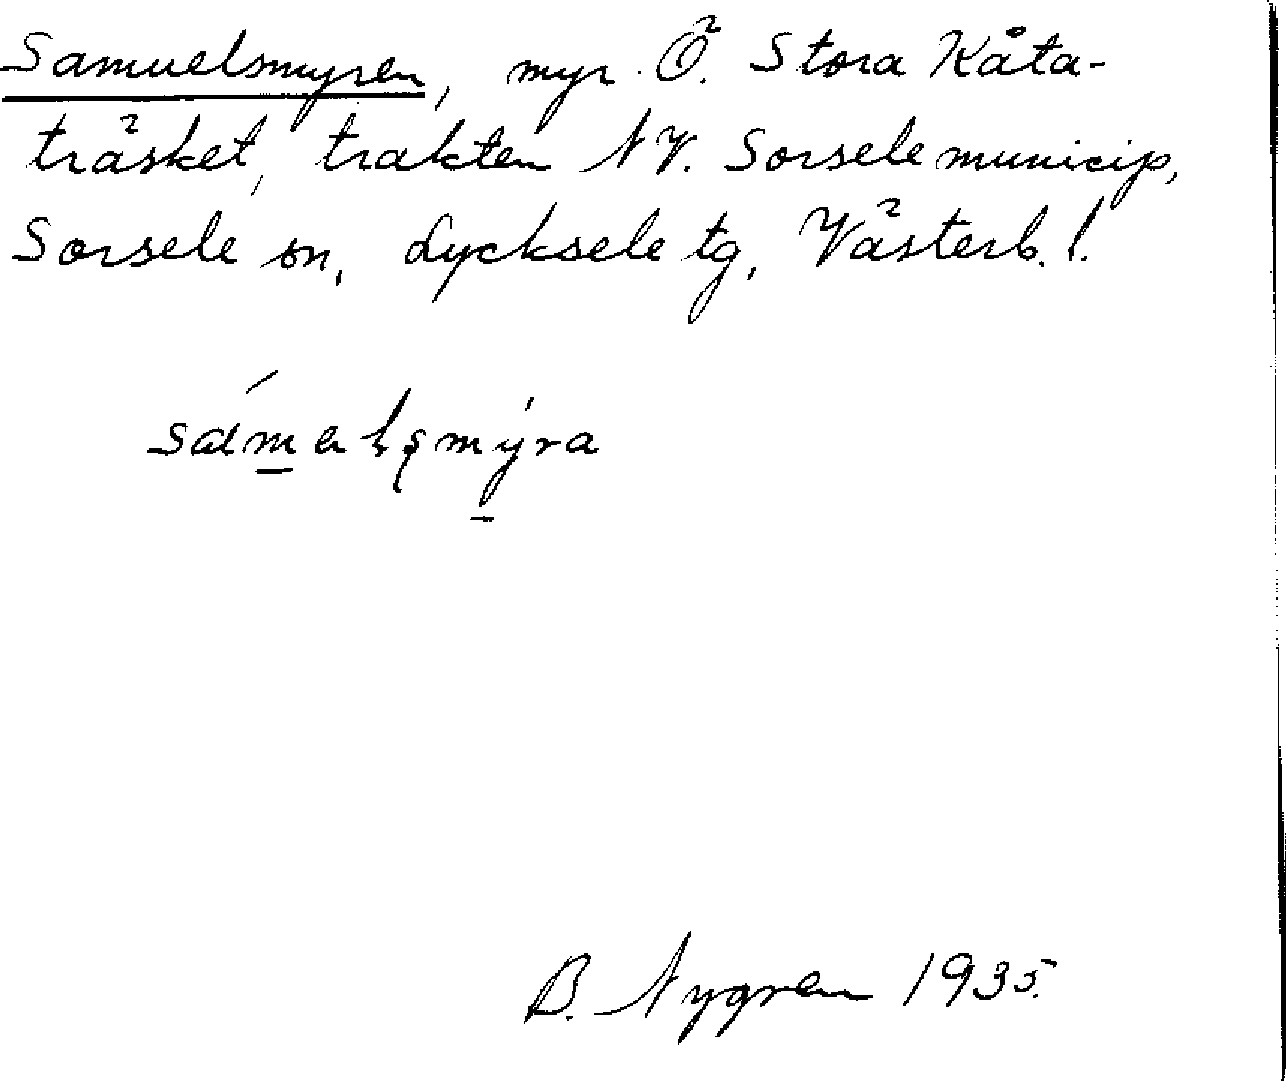 Samuelsmyren, myr Ö. Stora Kåta-
träsket, trakten NV. Sorsele municip,
Sorsele sn, Lycksele tg, Västerb. l.
sámelsmýra
B. Nygren 1935.